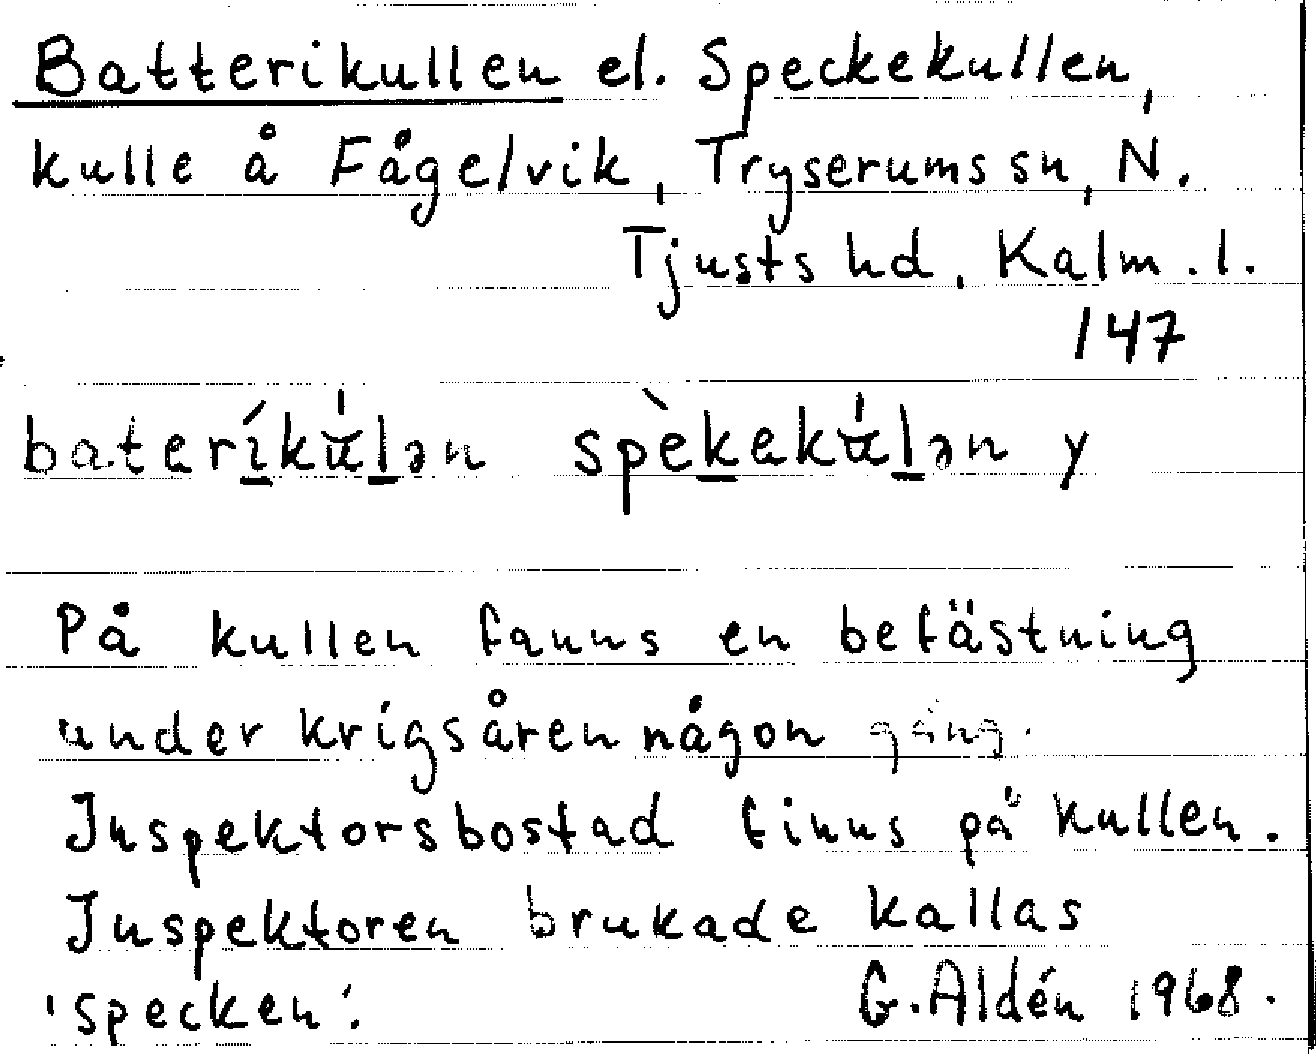 Batterikullen el. Speckekullen,
kulle å Fågelvik, Tryserums sn, N.
Tjusts hd, Kalm. l.
147
bateríkʉ́lən spèkekʉ́lən y
På kullen fanns en befästning
under krigsåren någon gång.
Inspektorsbostad finns på kullen.
Inspektoren brukade kallas
'specken'.
G. Aldén 1968.